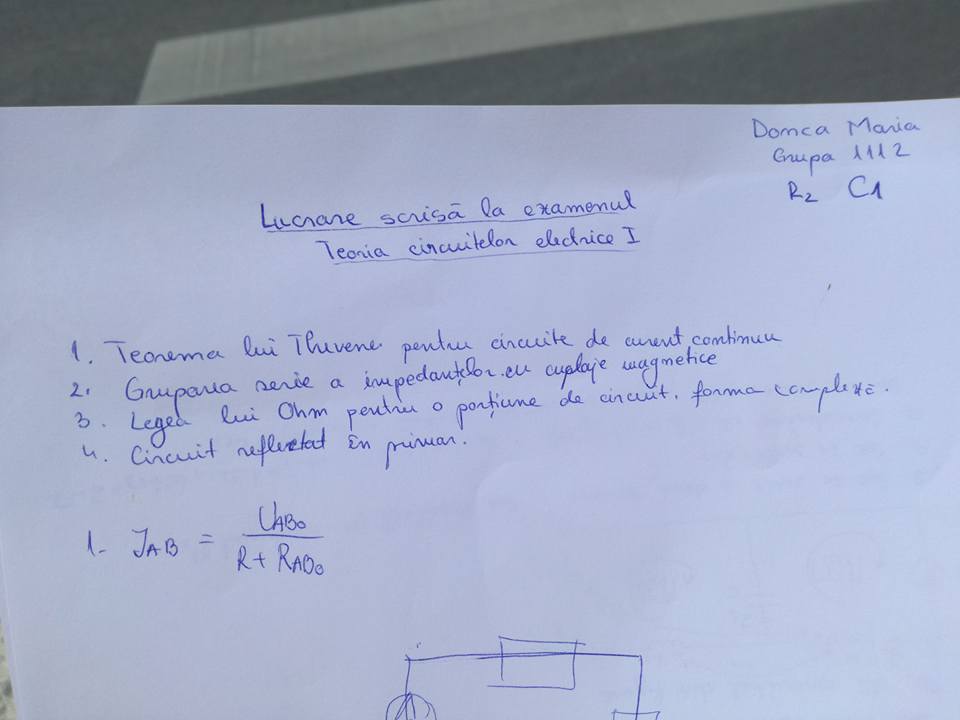 Domca Maria
Grupa 1112
R2 C1
Lucrare scrisă la examenul
Teoria circuitelor electrice I
1. Teorema lui Thevene pentru circuite de curent continuu
2. Gruparea serie a impedanțelor cu cuplaje magnetice
3. Legea lui Ohm pentru o porțiune de circuit. forma complexă.
4. Circuit reflectat în primar.
1- IAB = UABo / R + RABo